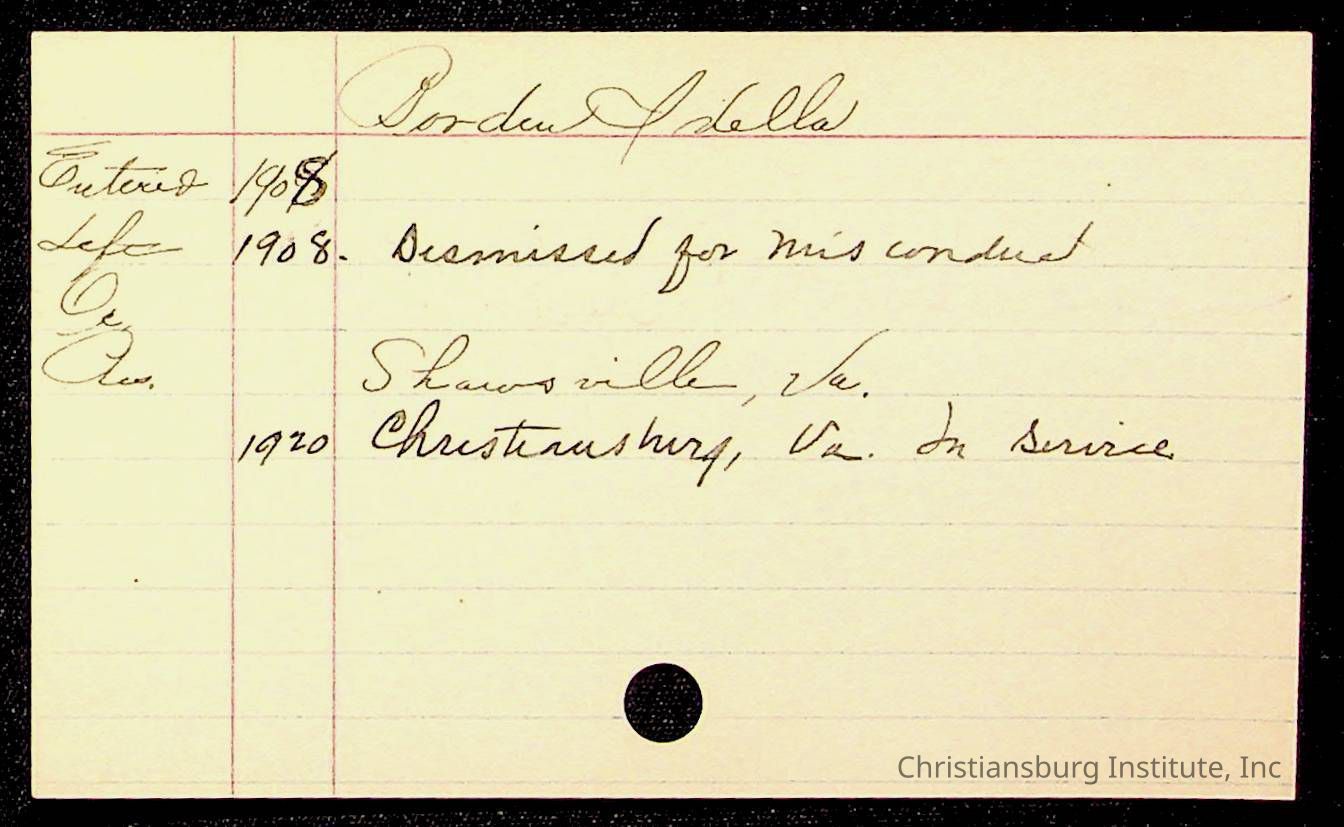 Borden Idella
Entered 1908
Left 1908. Dismissed for misconduct
Oc.
Res. Shawsville, Va.
1920 Christiansburg, Va. In Service
Christiansburg Institute, Inc